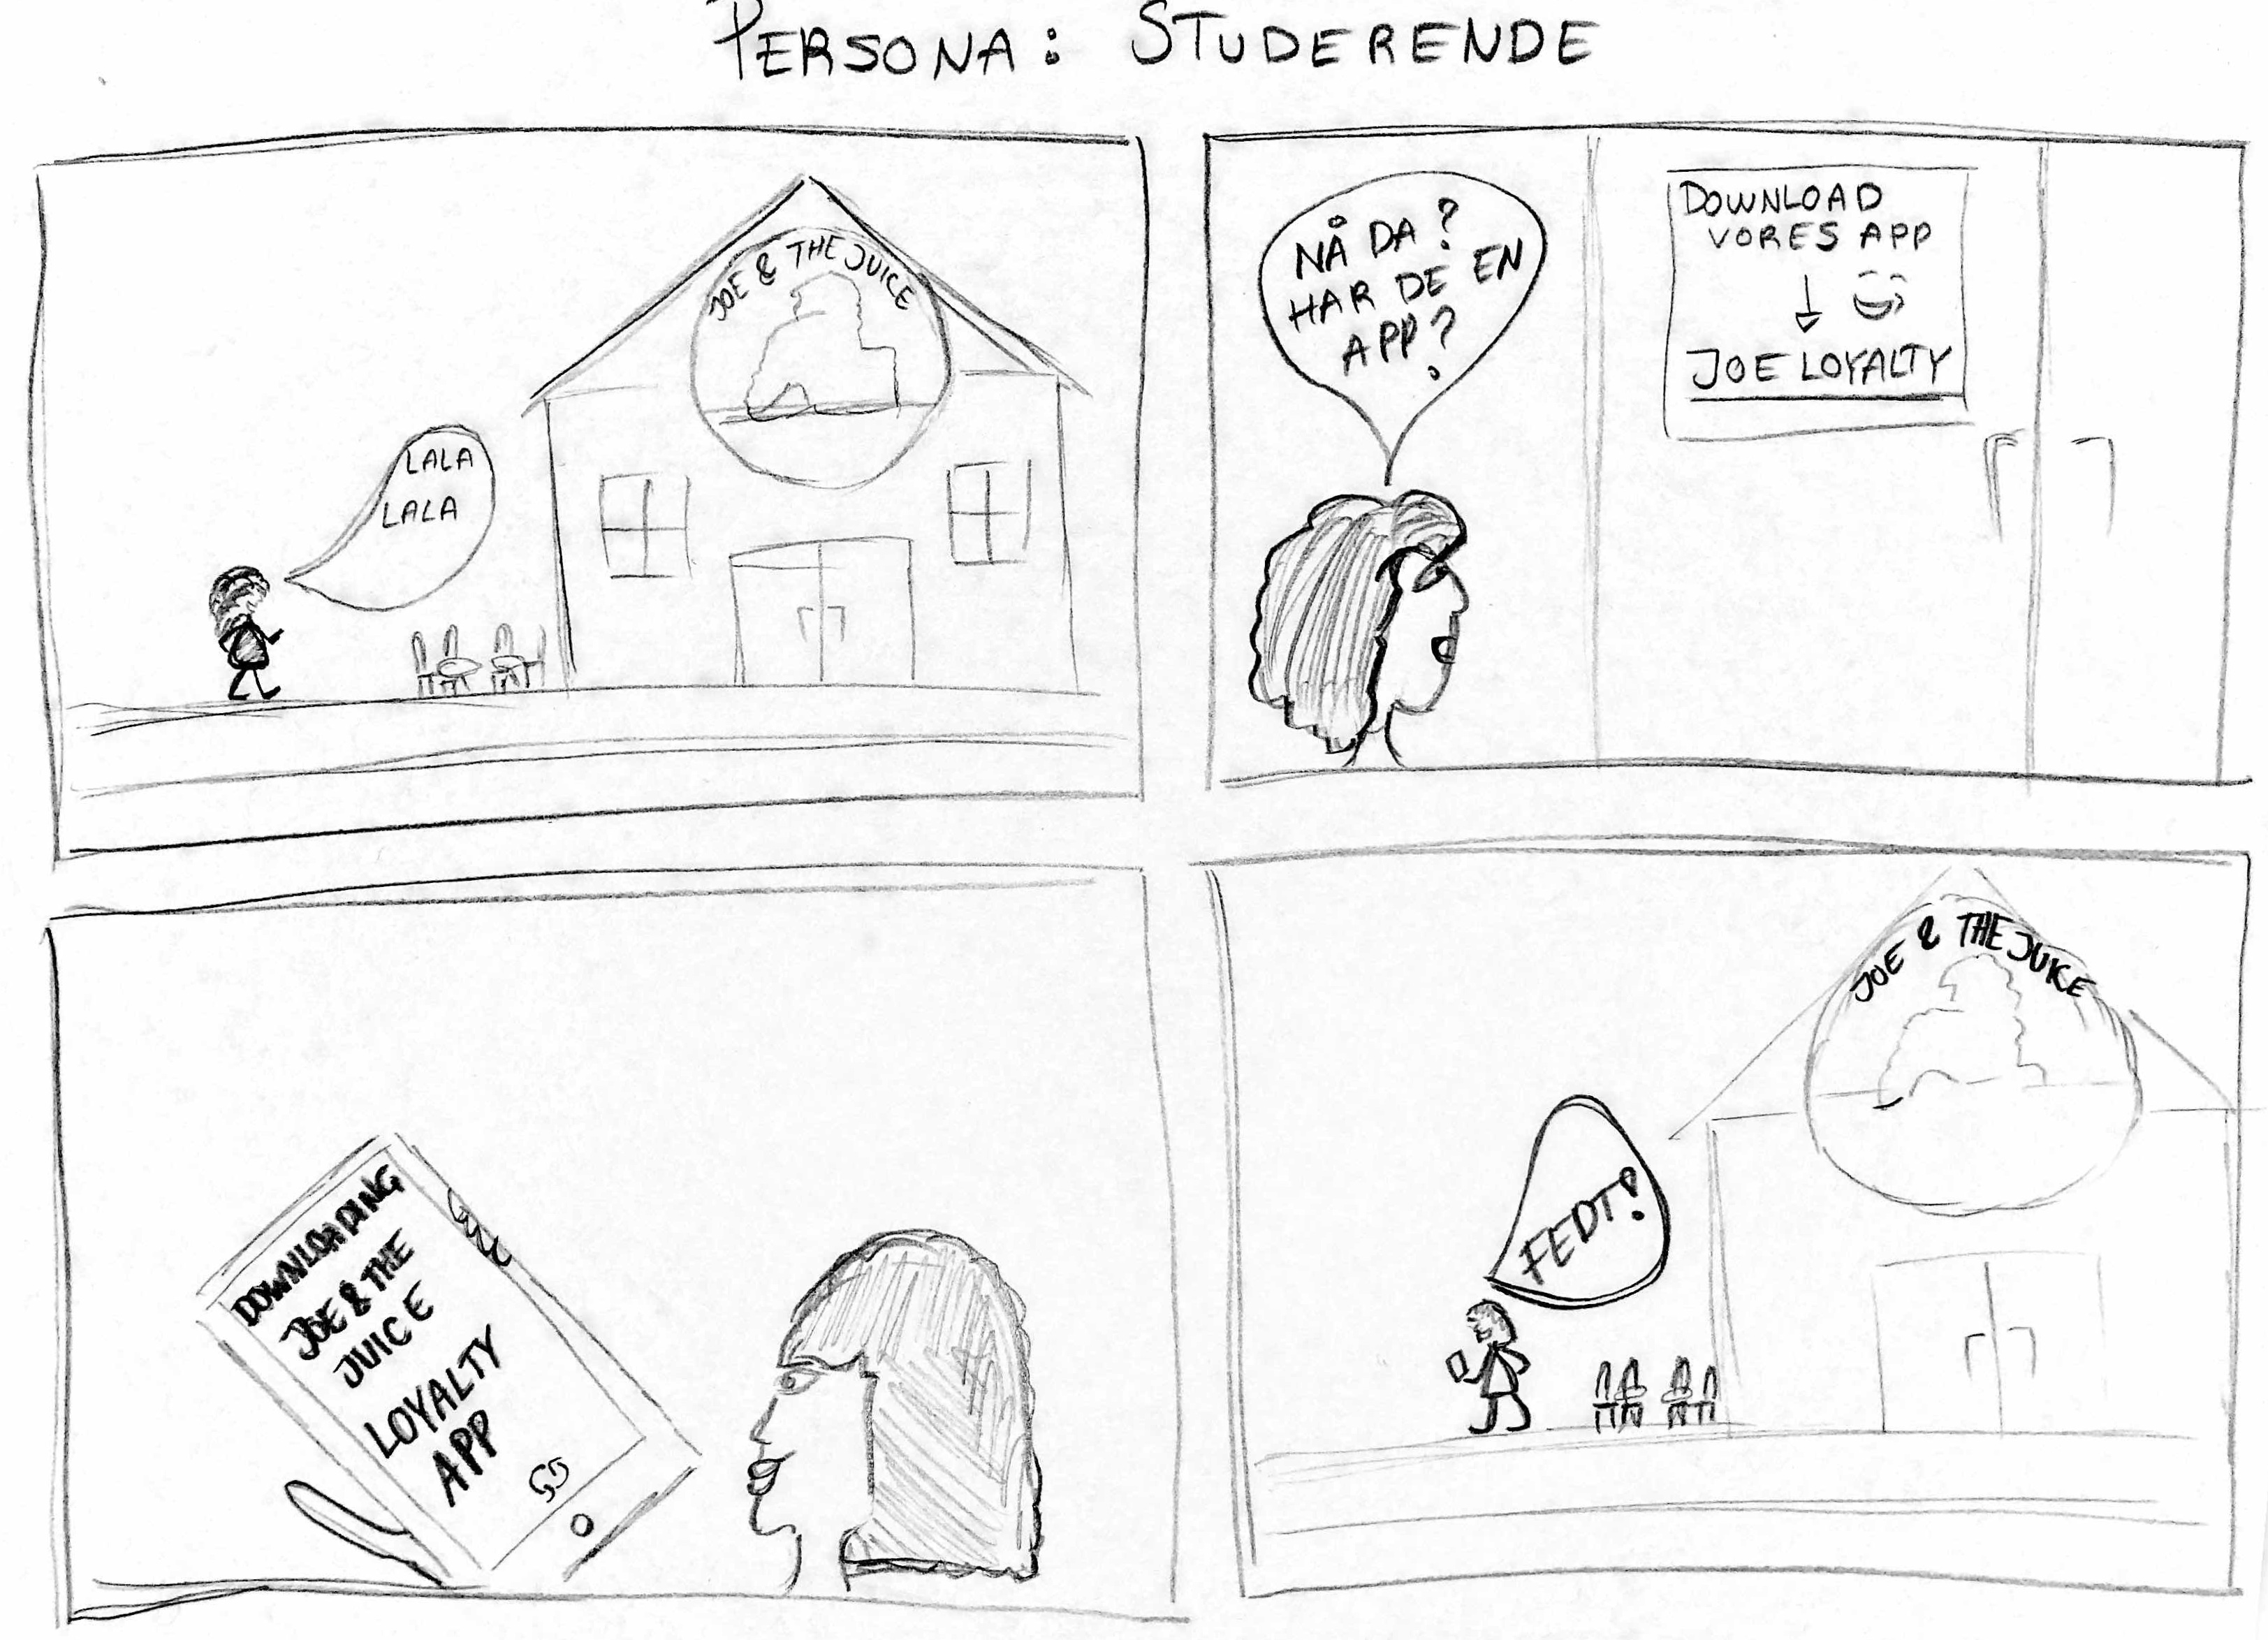 PERSONA: STUDERENDE
JOE & THE JUICE
LALA
LALA
NÅ DA?
HAR DE EN
APP?
DOWNLOAD
VORES APP
JOE LOYALTY
DOWNLOADING
JOE & THE
JUICE
LOYALTY
APP
JOE & THE JUICE
FEDT!